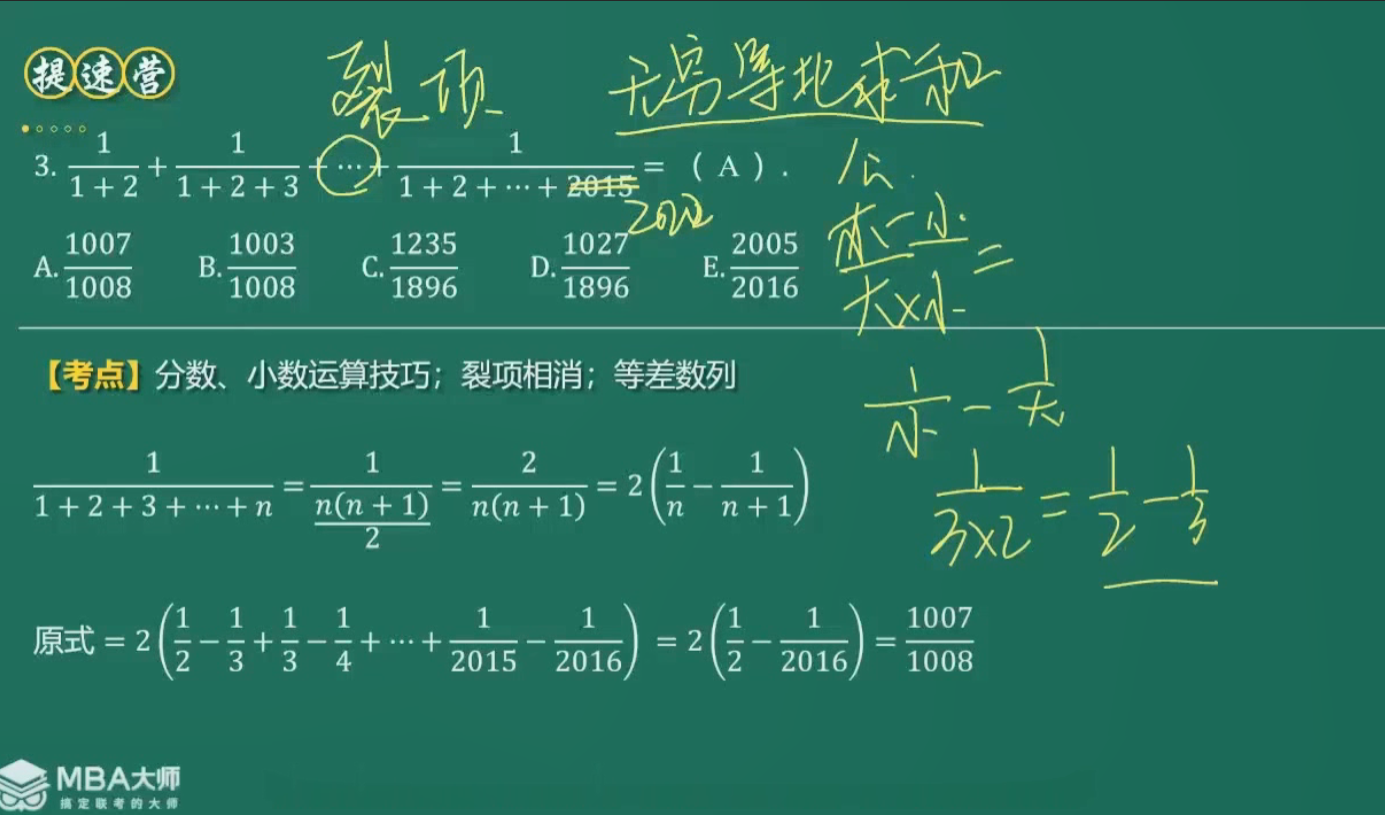 提速营
裂项 无穷等比求和
3. 1/(1+2) + 1/(1+2+3) + ⋯ + 1/(1+2+⋯+2015) = ( A ).
2022
A. 1007/1008 B. 1003/1008 C. 1235/1896 D. 1027/1896 E. 2005/2016
大-小/大×小 =
1/小 - 1/大
【考点】分数、小数运算技巧；裂项相消；等差数列
1/(3×2) = 1/2 - 1/3
1/(1+2+3+⋯+n) = 1/(n(n+1)/2) = 2/(n(n+1)) = 2(1/n - 1/(n+1))
原式 = 2(1/2 - 1/3 + 1/3 - 1/4 + ⋯ + 1/2015 - 1/2016) = 2(1/2 - 1/2016) = 1007/1008
MBA大师
搞定联考的大师